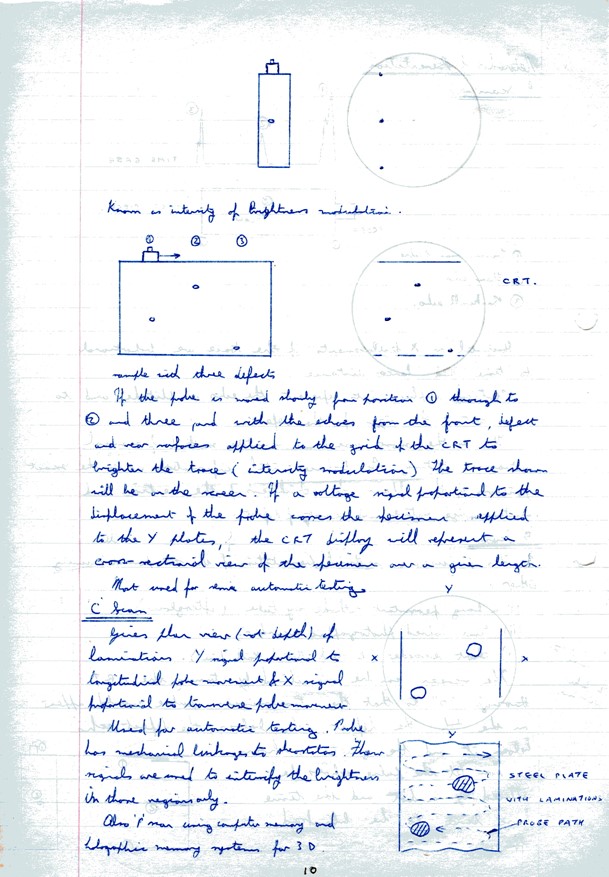 Known as intensity of Brightness modulation.
① ② ③
CRT.
sample with three defects
If the probe is moved slowly from position ① through to
② and three and with the echoes from the front, defect
and rear surfaces applied to the grid of the CRT to
brighten the trace (intensity modulation) the trace shown
will be on the screen. If a voltage signal proportional to the
displacement of the probe across the specimen applied
to the Y plates, the CRT display will represent a
cross-sectional view of the specimen over a given length.
Most used for semi automatic testing.
C Scan
Gives plan view (not depth) of
laminations. Y signal proportional to
longitudinal probe movement & X signal
proportional to transverse probe movement
Used for automatic testing. Probe
has mechanical linkages to rheostats. Flaw
signals are used to intensify the brightness
in those regions only.
Also 'P' scan using computer memory and
holographic memory systems for 3D.
Y
X X
Y
STEEL PLATE
WITH LAMINATIONS
PROBE PATH
10